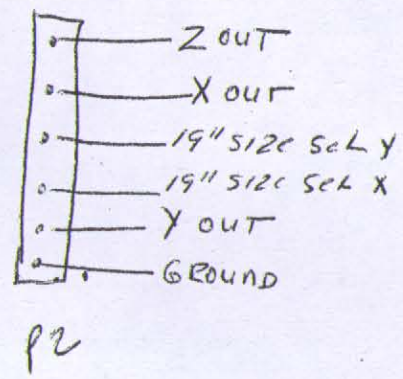 Z OUT
X OUT
19" SIZE SEL Y
19" SIZE SEL X
Y OUT
GROUND
P2